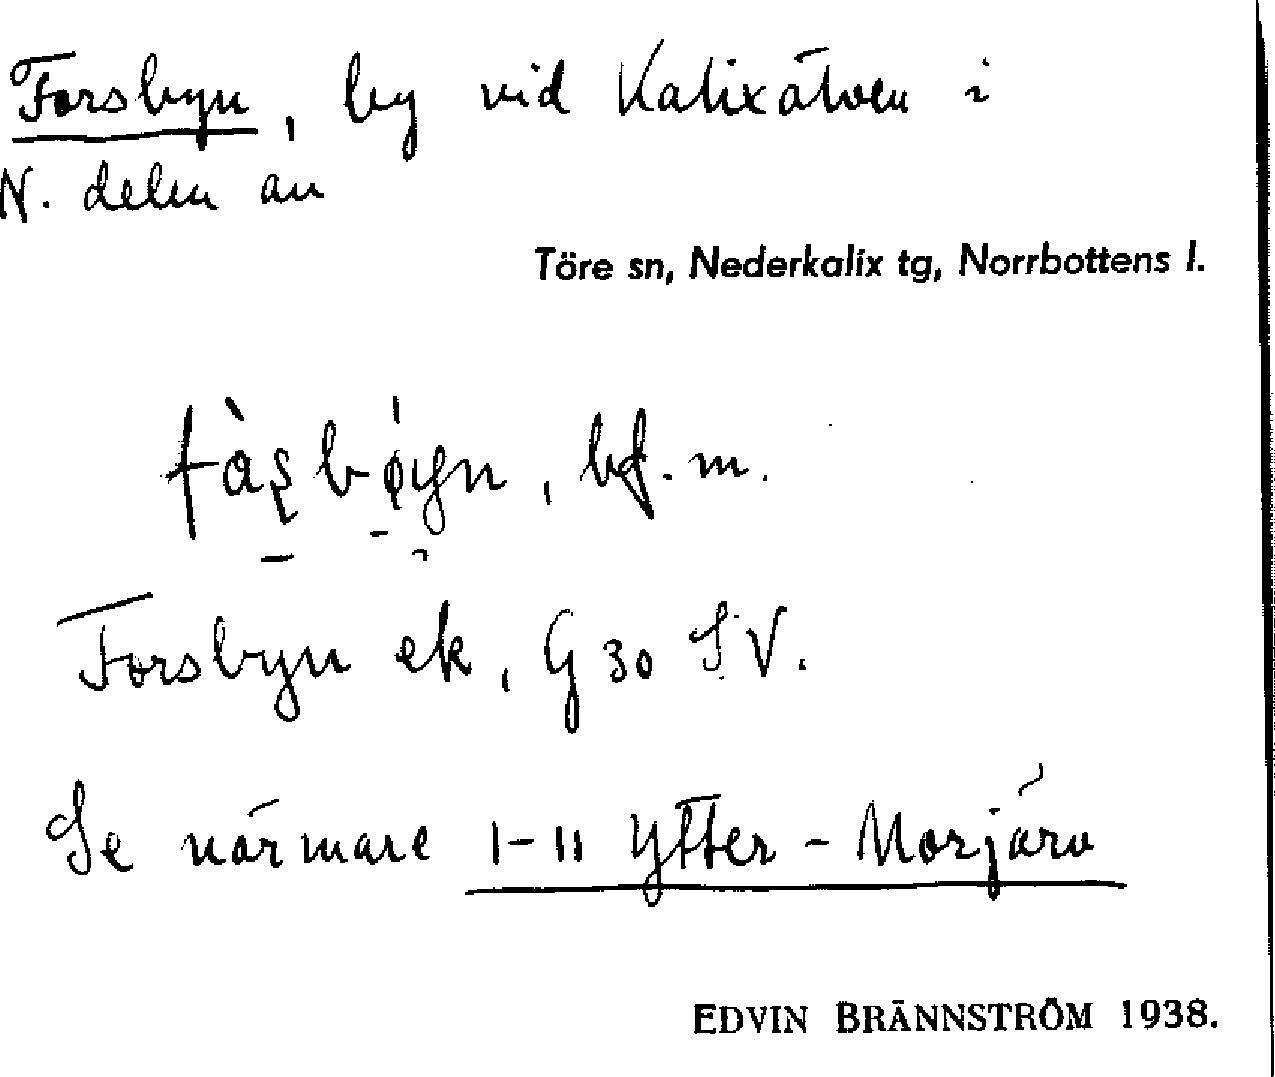 Forsbyn, by vid Kalixälven i
N. delen av
Töre sn, Nederkalix tg, Norrbottens l.
bf. m.
Forsbyn ek, G 30 SV.
Se närmare 1-11 Ytter-Morjärv
EDVIN BRÄNNSTRÖM 1938.